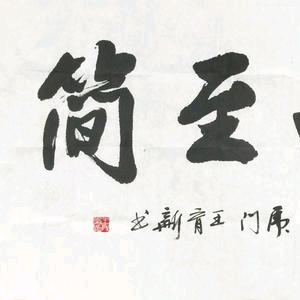 至简
门王育新书